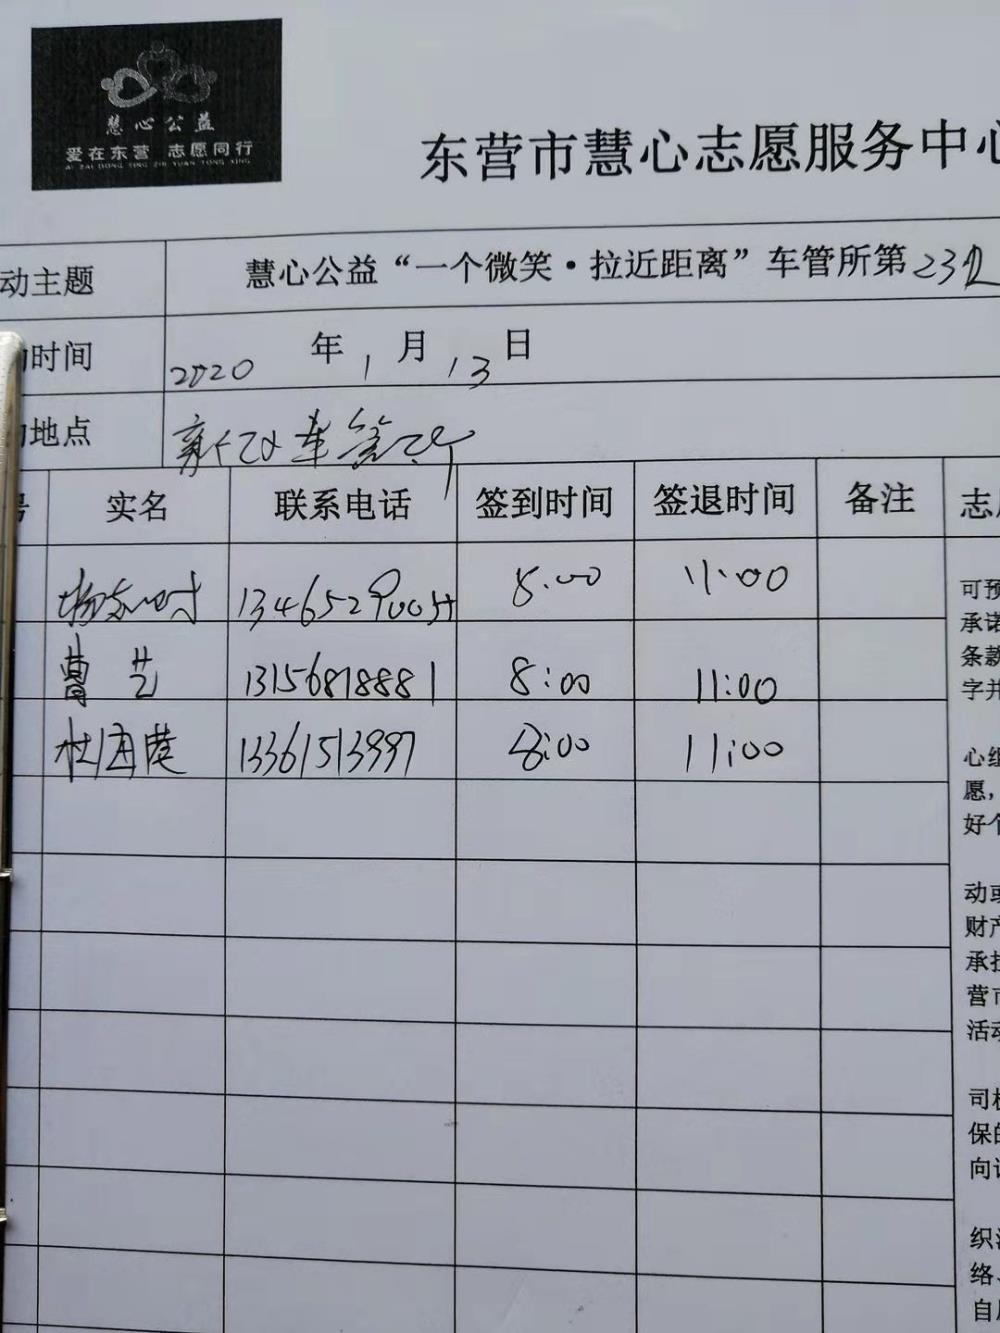 慧心公益
爱在东营 志愿同行
AI ZAI DONG YING ZHI YUAN TONG XING
东营市慧心志愿服务中心
动主题 慧心公益“一个微笑·拉近距离”车管所第232
时间 2020 年 1 月 13 日
地点 车管所
号 实名 联系电话 签到时间 签退时间 备注 志愿
8:00 11:00
曹艺 13156818881 8:00 11:00
杜海 13361513997 8:00 11:00
可预
承诺
条款
字并
心组
愿，
好个
动或
财产
承担
营市
活动
司机
保的
向
织
络、
自